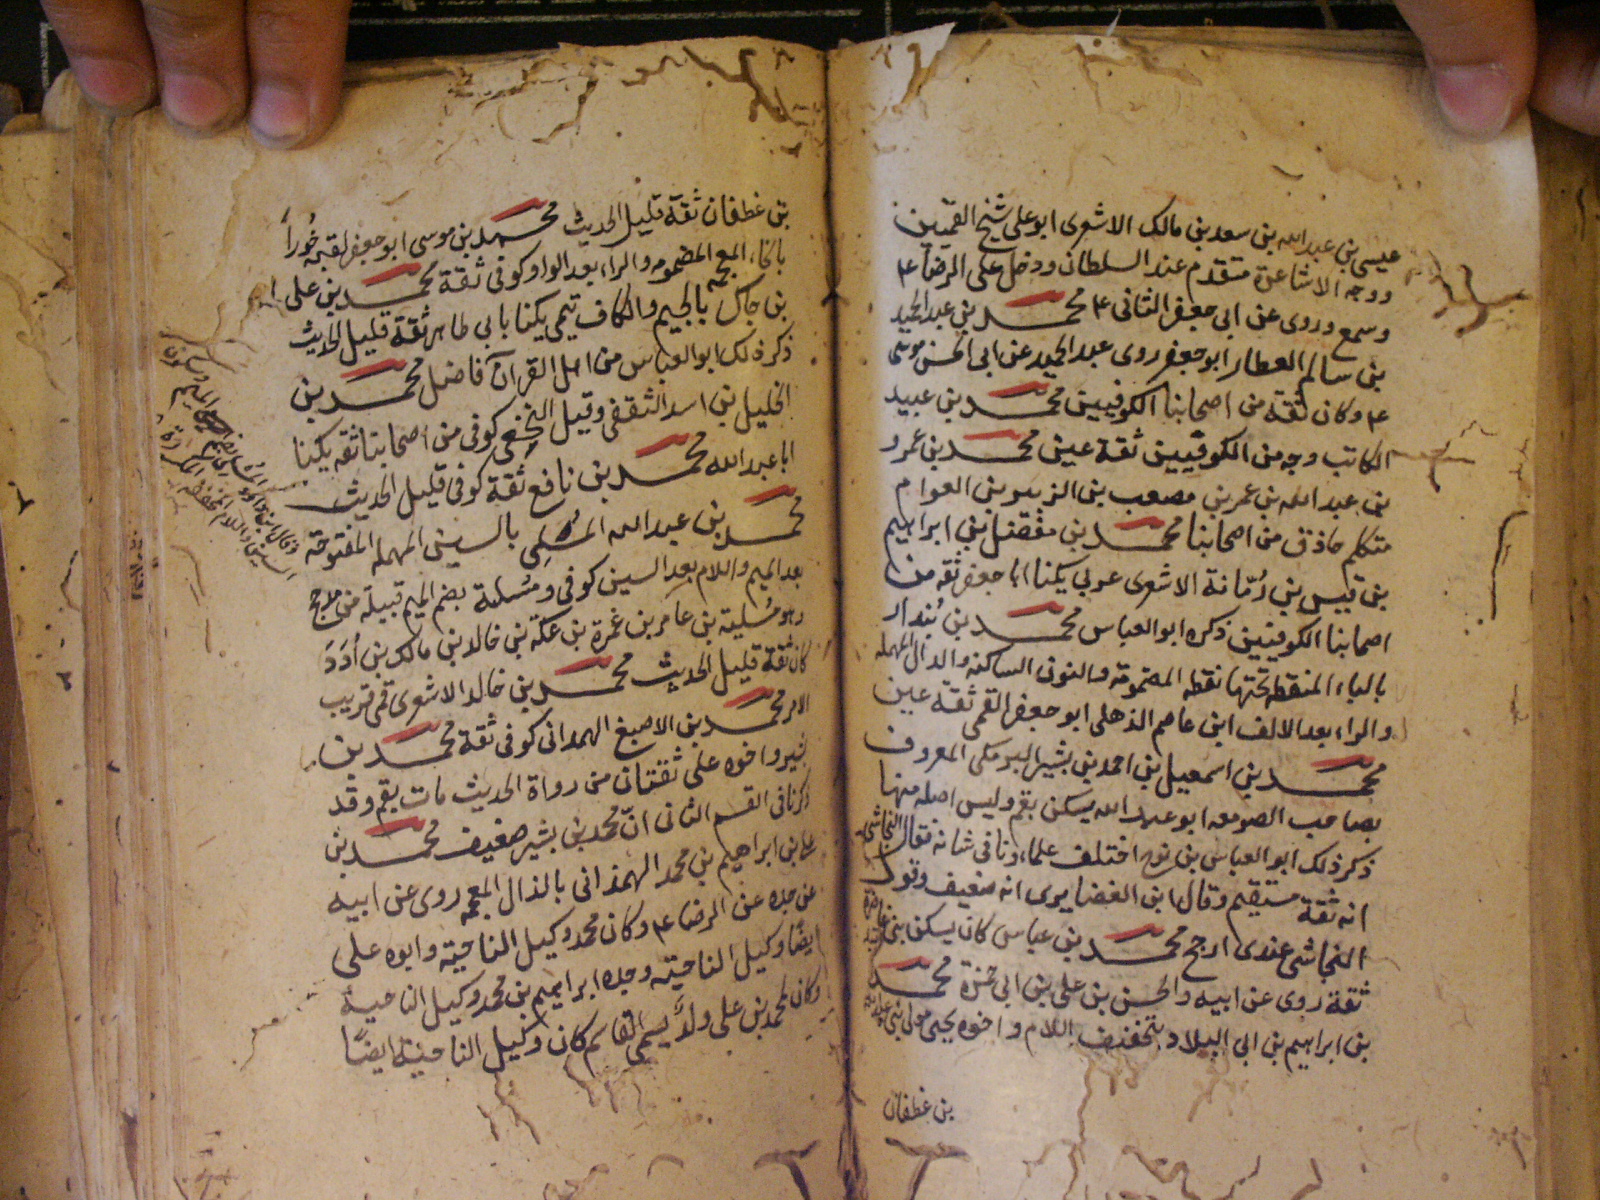 عيسى بن عبد الله بن سعد بن مالك الاشعرى ابو على شيخ القميين
ووجه الاشاعرة متقدم عند السلطان ودخل على الرضا ع
وسمع وروى عن ابى جعفر الثانى ع محمد بن عبد الحميد
بن سالم العطار ابو جعفر روى عبد الحميد عن ابى الحسن موسى
ع وكان ثقة من اصحابنا الكوفيين محمد بن عبيد
الكاتب وجه من الكوفيين ثقة عين محمد بن عمرو
بن عبد الله بن عمر بن مصعب بن الزبير بن العوام
متكلم حاذق من اصحابنا محمد بن مفضل بن ابراهيم
بن قيس بن رمّانة الاشعرى عربى يكنا ابا جعفر ثقة من
اصحابنا الكوفيين ذكره ابو العباس محمد بن بُندار
بالباء المنقطه تحتها نقطه المضمومة والنون الساكنه والدال المهمله
والراء بعد الالف ابن عاصم الذهلى ابو جعفر القمى ثقة عين
محمد بن اسمعيل بن احمد بن بشير البرمكى المعروف
بصاحب الصومعه ابو عبد الله يسكن بقم وليس اصله منها
ذكر ذلك ابو العباس بن نوح اختلف علماءنا فى شانه فقال النجاشى
انه ثقة مستقيم وقال ابن الغضايرى انه ضعيف وقول
النجاشى عندى ارجح محمد بن عباس كان يسكن بنى غاضرة
ثقة روى عن ابيه والحسن بن على بن ابى حمزة محمد
بن ابراهيم بن ابى البلاد بتخفيف اللام واخوه يحيى مولى بنى عبد الله
بن غطفان
بن غطفان ثقة قليل الحديث محمد بن موسى ابو جعفر لقبه خُوراً
بالخاء المعجمه المضمومه والراء بعد الواو كوفى ثقة محمد بن على
بن جاك بالجيم والكاف قمى يكنا بابى طاهر ثقة قليل الحديث
ذكر ذلك ابو العباس من اهل القرآن فاضل محمد بن
الخليل بن اسد الثقفى وقيل النخعى كوفى من اصحابنا ثقه يكنا
ابا عبد الله محمد بن نافع ثقة كوفى قليل الحديث
محمد بن عبد الله المُسْلى بالسين المهمله المفتوحة
بعد الميم واللام بعد السين كوفى ومُسلية بضم الميم قبيلة من مذحج
وهو مُسلية بن عامر بن عمرة بن عكة بن خالد بن مالك بن أدَد
كان ثقة قليل الحديث محمد بن خالد الاشعرى قمى قريب
الامر محمد بن الاصبغ الهمدانى كوفى ثقة محمد بن
بشير واخوه على ثقتان من رواة الحديث مات بقم وقد
ذكرنا فى القسم الثانى انّ محمد بن بشير ضعيف محمد بن
على بن ابراهيم بن محمد الهمذانى بالذال المعجمه روى عن ابيه
عن جده عن الرضا ع وكان محمد وكيل الناحية وابوه على
ايضًا وكيل الناحية وجده ابراهيم بن محمد وكيل الناحية
وكان لمحمد بن على ولدٌ يسمى القاسم كان وكيل الناحية ايضًا